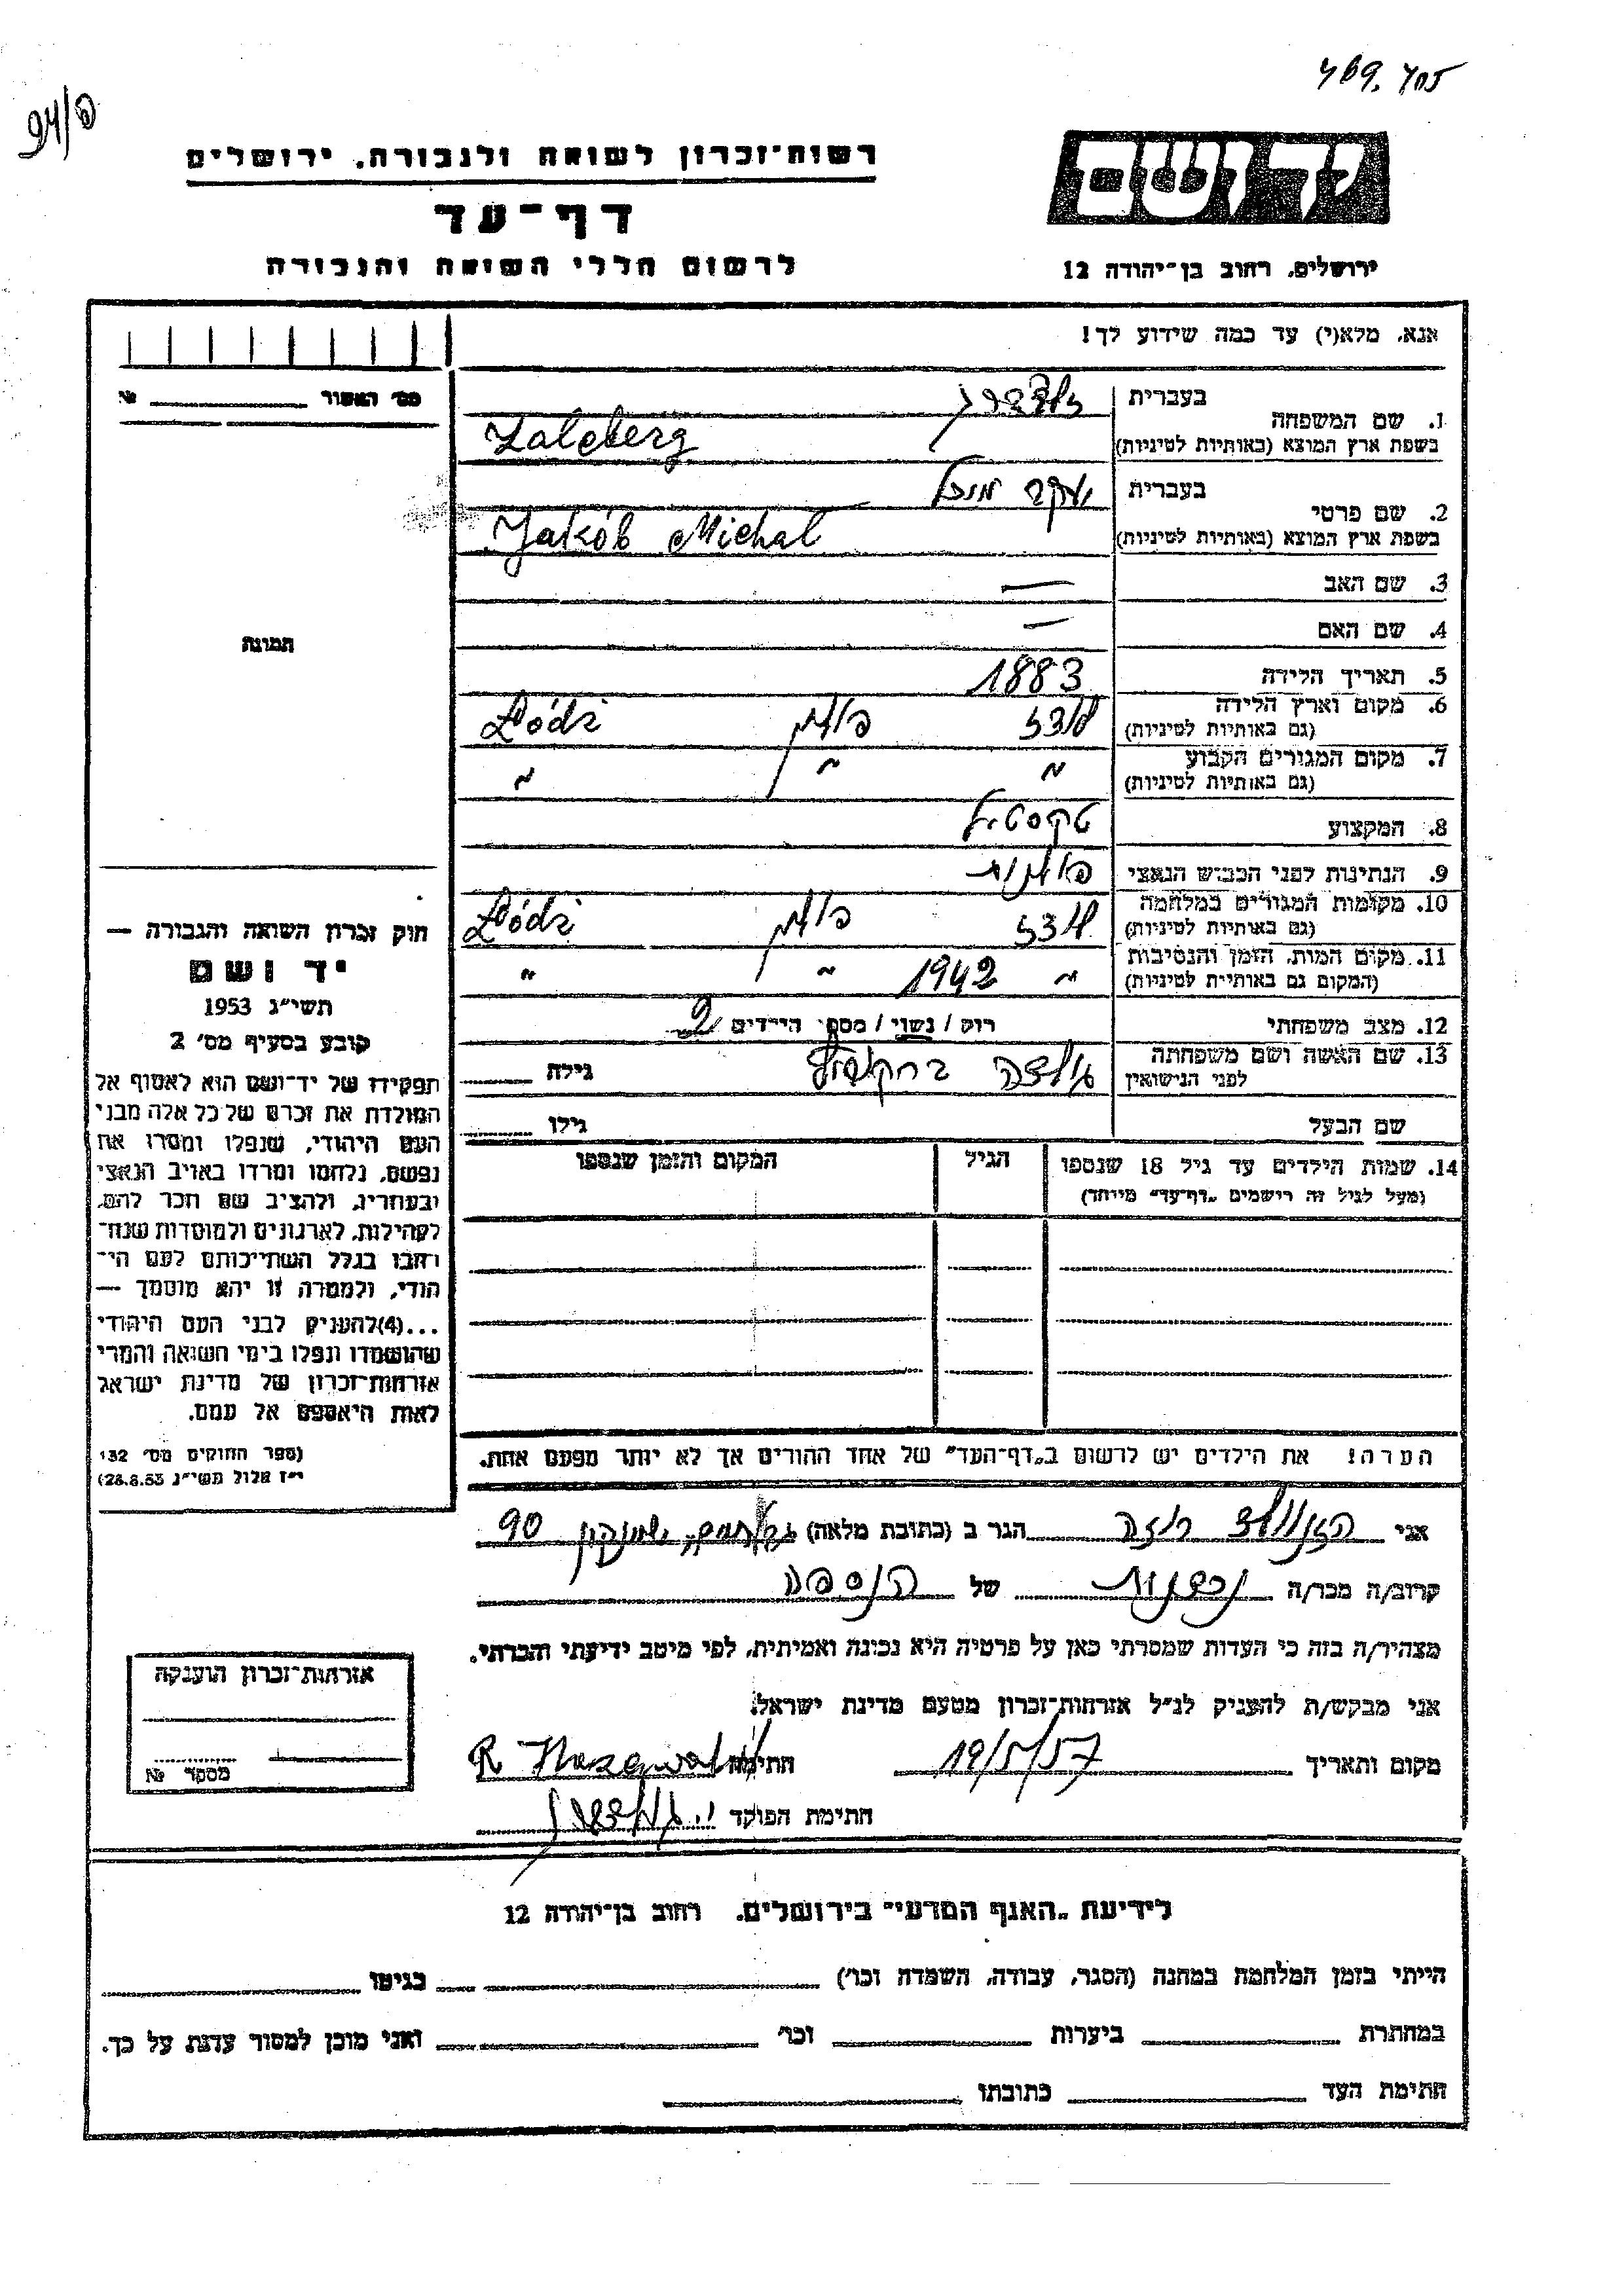 469. 405
94/פ
רשות־זכרון לשואה ולגבורה, ירושלים
דף־עד
לרשום חללי השואה והגבורה
יד ושם
ירושלים, רחוב בן־יהודה 12
אנא, מלא(י) עד כמה שידוע לך!
מס׳ האשור №
תמונה
1. שם המשפחה
בעברית זלצברג
בשפת ארץ המוצא (באותיות לטיניות) Zalcberg
2. שם פרטי
בעברית יעקב מיכל
בשפת ארץ המוצא (באותיות לטיניות) Jakób Michal
3. שם האב —
4. שם האם —
5. תאריך הלידה 1883
6. מקום וארץ הלידה (גם באותיות לטיניות) לודז פולין Łódź
7. מקום המגורים הקבוע (גם באותיות לטיניות) " " "
8. המקצוע טקסטיל
9. הנתינות לפני הכבוש הנאצי פולנית
10. מקומות המגורים במלחמה (גם באותיות לטיניות) לודז פולין Łódź
11. מקום המות, הזמן והנסיבות (המקום גם באותיות לטיניות) " 1942 " "
12. מצב משפחתי רוק / נשוי / מספר הילדים 2
13. שם האשה ושם משפחתה לפני הנישואין גילה
שם הבעל גילו
14. שמות הילדים עד גיל 18 שנספו הגיל המקום והזמן שנספו
(מעל לגיל זה רישמים „דף־עד" מייוחד)
הערה! את הילדים יש לרשום ב„דף־העד" של אחד ההורים אך לא יותר מפעם אחת.
חוק זכרון השואה והגבורה —
יד ושם
תשי״ג 1953
קובע בסעיף מס׳ 2
תפקידו של יד־ושם הוא לאסוף אל
המולדת את זכרם של כל אלה מבני
העם היהודי, שנפלו ומסרו את
נפשם, נלחמו ומרדו באויב הנאצי
ובעוזריו, ולהציב שם וזכר להם,
לקהילות, לארגונים ולמוסדות שנח־
רבו בגלל השתייכותם לעם הי־
הודי, ולמטרה זו יהא מוסמך —
...(4)להעניק לבני העם היהודי
שהושמדו ונפלו בימי השואה והמרי
אזרחות־זכרון של מדינת ישראל
לאות היאספם אל עמם.
(ספר החוקים מס׳ 132
י״ז אלול תשי״ג 28.8.53)
אני רוזה הגר ב (כתובת מלאה) 90
קרוב/ה מכר/ה של הנספה
מצהיר/ה בזה כי העדות שמסרתי כאן על פרטיה היא נכונה ואמיתית, לפי מיטב ידיעתי והכרתי.
אני מבקש/ת להעניק לנ״ל אזרחות־זכרון מטעם מדינת ישראל.
מקום ותאריך 19/5/57 חתימה R
חתימת הפוקד
אזרחות־זכרון הוענקה
מספר №
לידיעת „האגף המדעי" בירושלים, רחוב בן־יהודה 12
הייתי בזמן המלחמה במחנה (הסגר, עבודה, השמדה וכר׳) בגיטו
במחתרת ביערות וכר׳ ואני מוכן למסור עדות על כך.
חתימת העד כתובתו